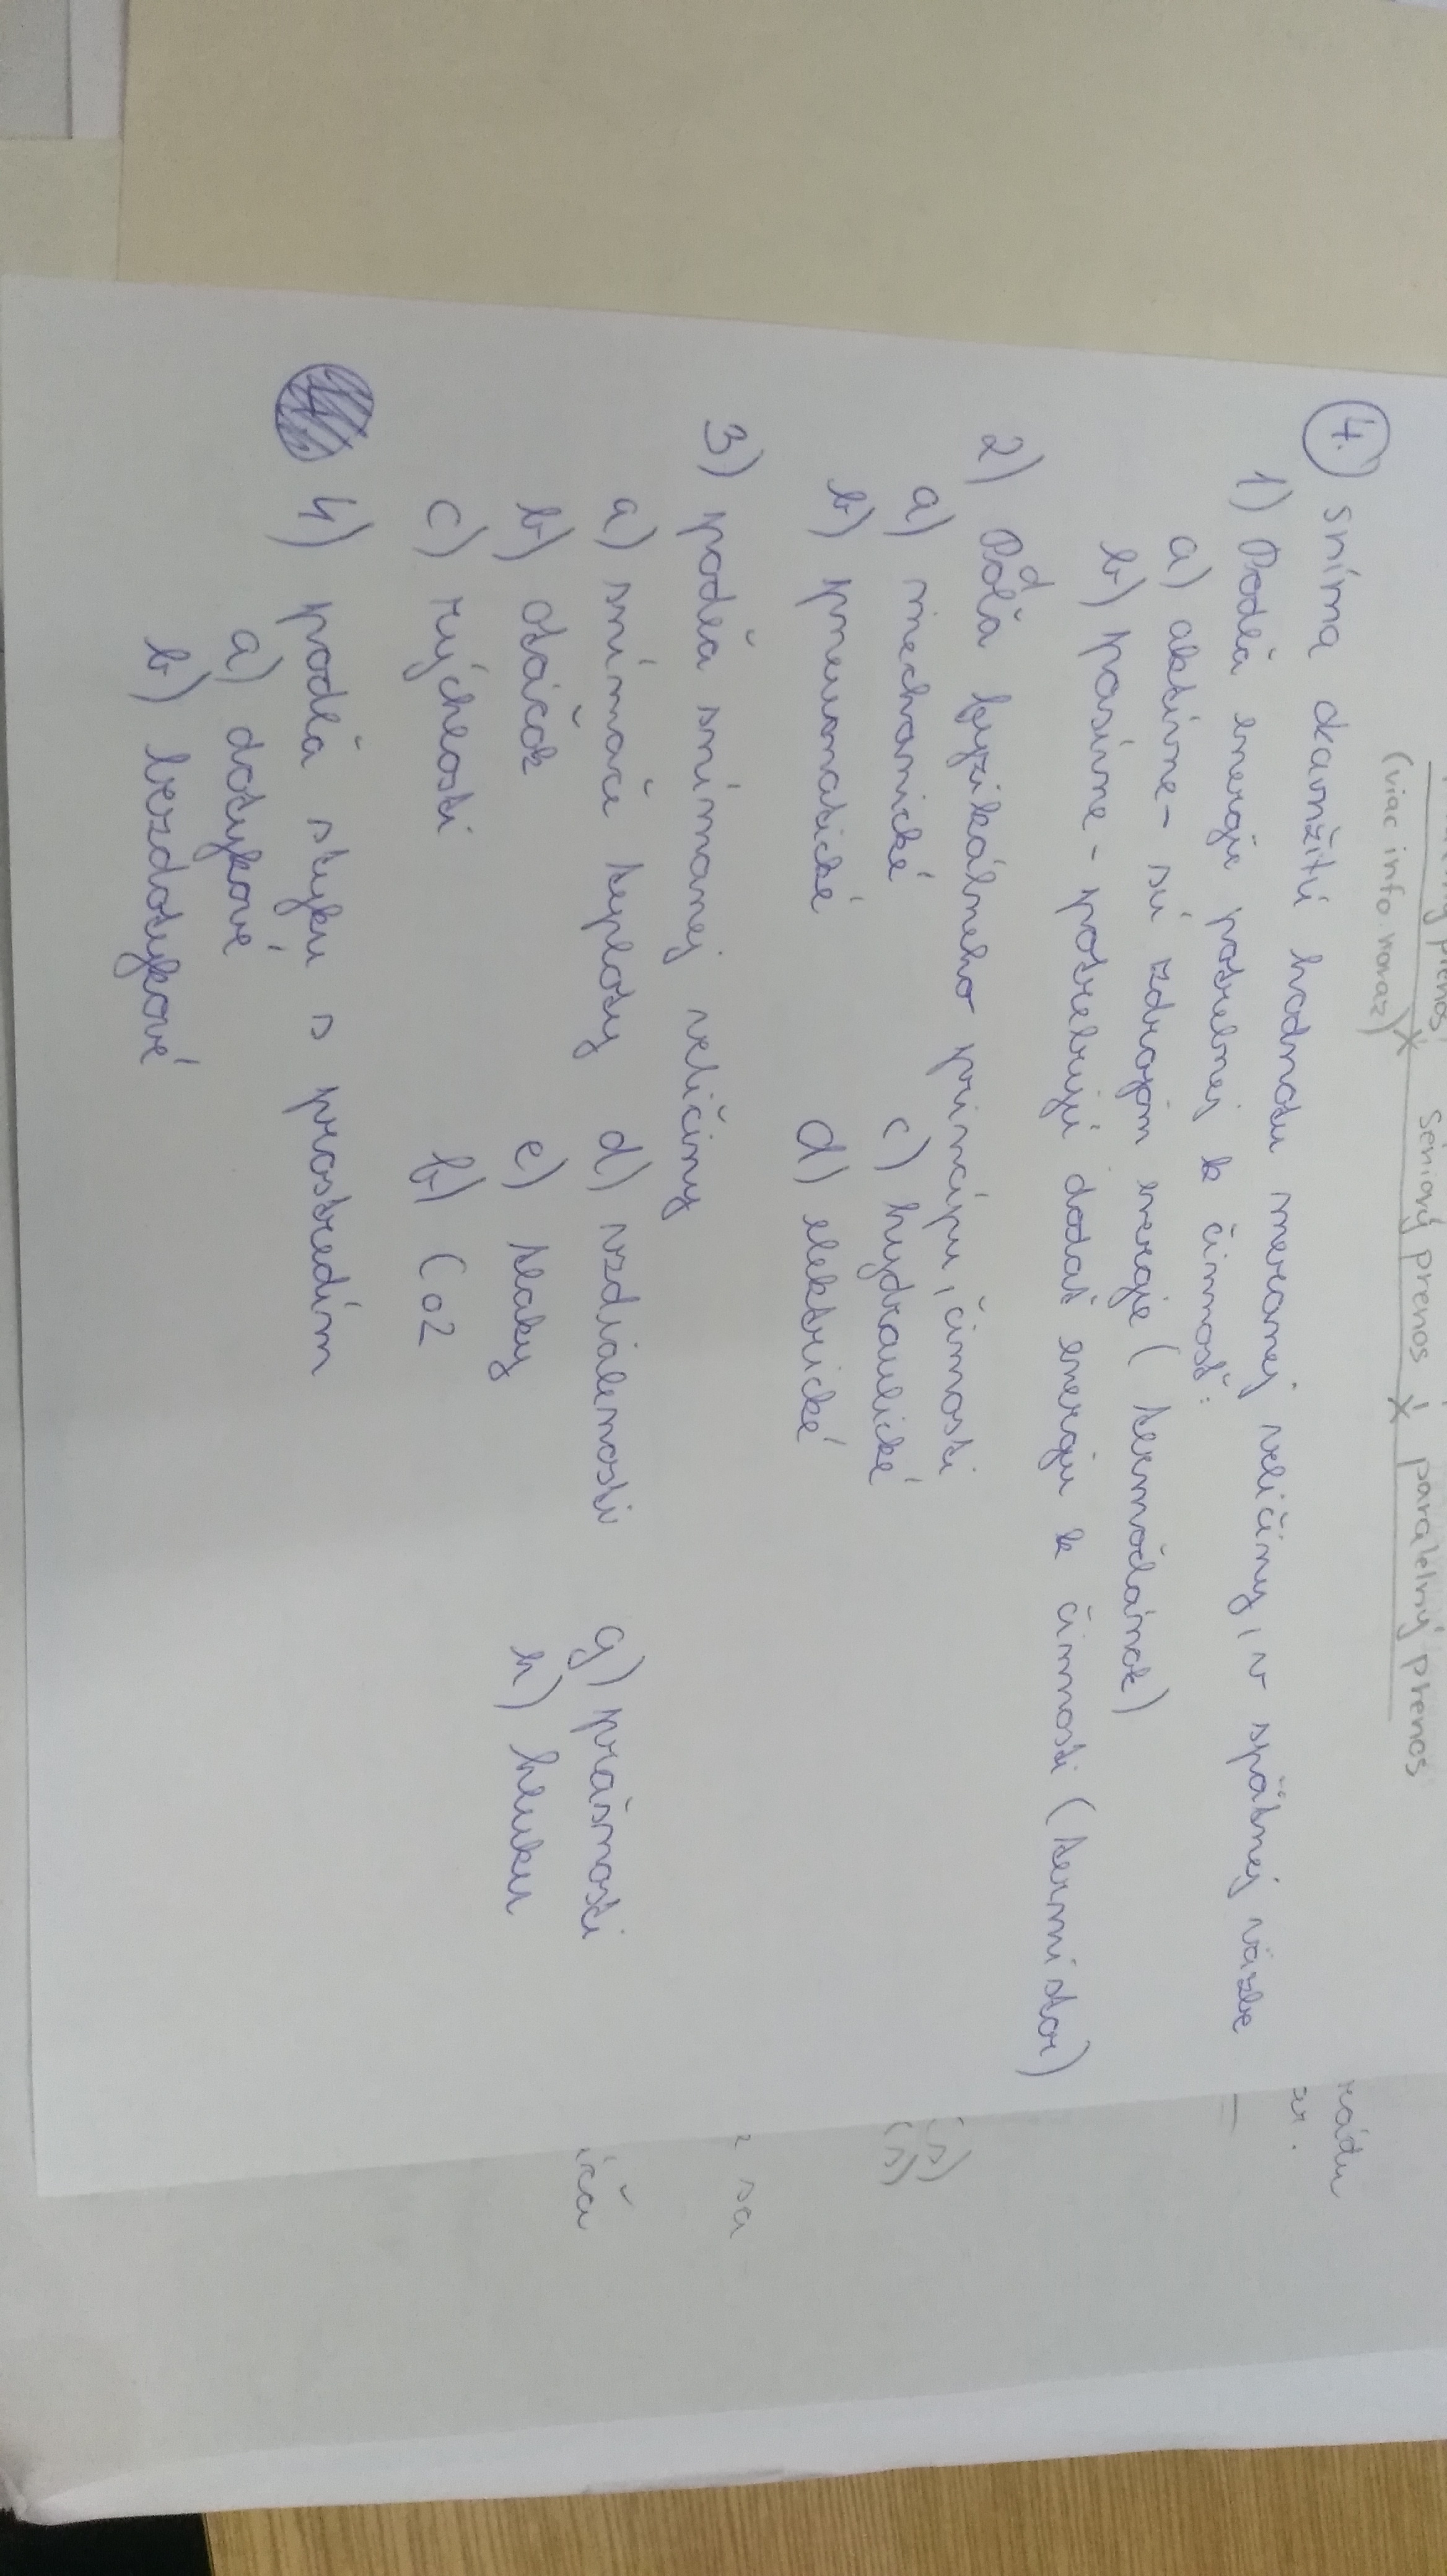 prenos sériový prenos paralelný prenos
(viac info. naraz)
4. sníma okamžitú hodnotu meranej veličiny, v spätnej väzbe
1) Podľa energie potrebnej k činnosť:
a) aktívne - sú zdrojom energie (termočlánok)
b) pasívne - potrebujú dodať energiu k činnosti (termistor)
2) Podľa fyzikálneho princípu, činosti
a) mechanické c) hydraulické
b) pneumatické d) elektrické
3) podľa snímanej veličiny
a) snímače teploty d) vzdialenosti g) prašnosti
b) otáčok e) tlaky h) hluku
c) rýchlosti f) Co2
4) podľa styku s prostredím
a) dotykové
b) bezdotykové
sa